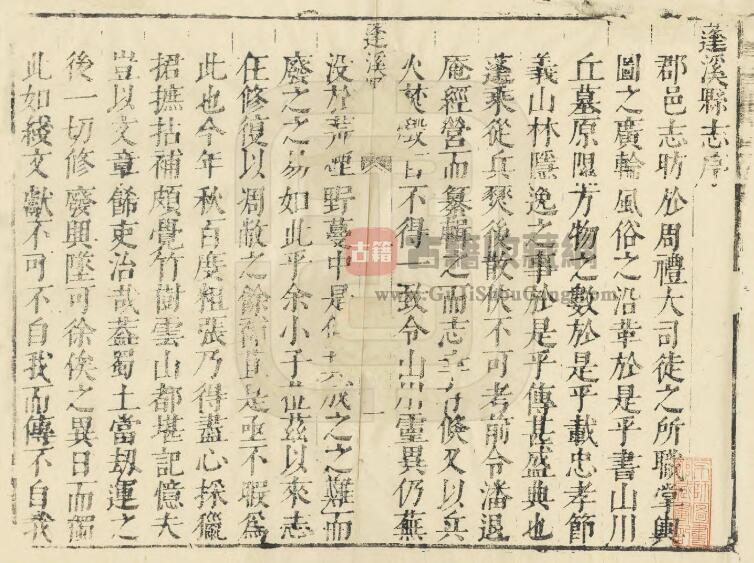 蓬溪縣志序
郡邑志昉於周禮大司徒之所職掌輿
圖之廣輪風俗之沿革於是乎書山川
丘墓原隰方物之數於是乎載忠孝節
義山林隱逸之事於是乎傳甚盛典也
蓬乘從兵燹後散佚不可考前令潘退
庵經營而纂輯之而志又以兵
火焚燬不得致令山川靈異仍蕪
蓬溪
一
没於荒煙野蔓中是成之之難而
廢之之易如此乎余小子蒞茲以來志
在修復以凋敝之餘是亟不暇爲
此也今年秋百度粗張乃得盡心採獵
捃摭拈補頗覺竹樹雲山都堪記憶夫
豈以文章飾吏治哉蓋蜀土當刼運之
後一切修廢興墜可徐俟之異日而獨
此如綫文獻不可不自我而傳不自我
古籍
古籍收藏網
www.GuJiShouCang.com